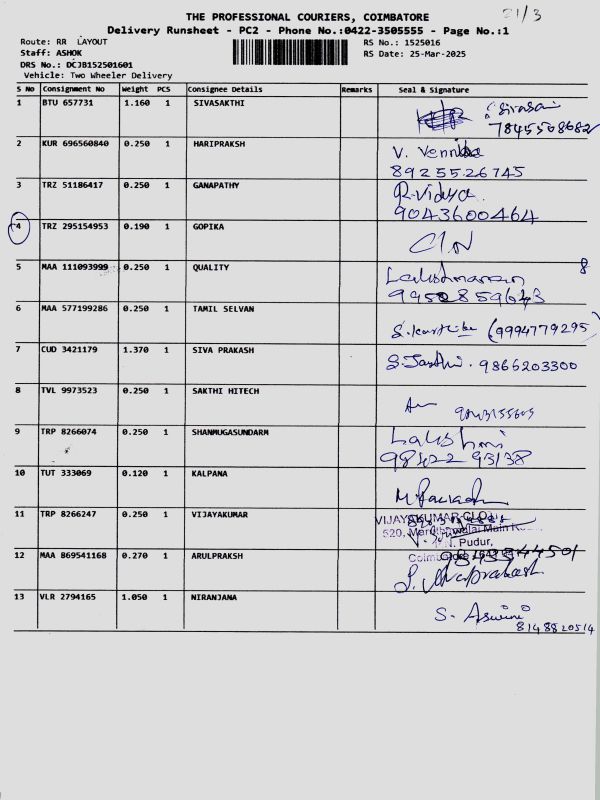 THE PROFESSIONAL COURIERS, COIMBATORE
Delivery Runsheet - PC2 - Phone No.:0422-3505555 - Page No.:1
Route: RR LAYOUT
Staff: ASHOK
DRS No.: DCJB152501601
Vehicle: Two Wheeler Delivery
RS No.: 1525016
RS Date: 25-Mar-2025
S No Consignment No Weight PCS Consignee Details Remarks Seal & Signature
1 BTU 657731 1.160 1 SIVASAKTHI
2 KUR 696560840 0.250 1 HARIPRAKSH V.
8925526745
3 TRZ 51186417 0.250 1 GANAPATHY R.Vidya
9043600464
4 TRZ 295154953 0.190 1 GOPIKA
5 MAA 111093999 0.250 1 QUALITY Lakshmanan
8
6 MAA 577199286 0.250 1 TAMIL SELVAN (9994779295)
7 CUD 3421179 1.370 1 SIVA PRAKASH 9866203300
8 TVL 9973523 0.250 1 SAKTHI HITECH
9 TRP 8266074 0.250 1 SHANMUGASUNDARM Lakshmi
98422 93138
10 TUT 333069 0.120 1 KALPANA
11 TRP 8266247 0.250 1 VIJAYAKUMAR VIJAYAKUMAR
520, Main
Pudur,
12 MAA 869541168 0.270 1 ARULPRAKSH
13 VLR 2794165 1.050 1 NIRANJANA S. Aswini
8148820514